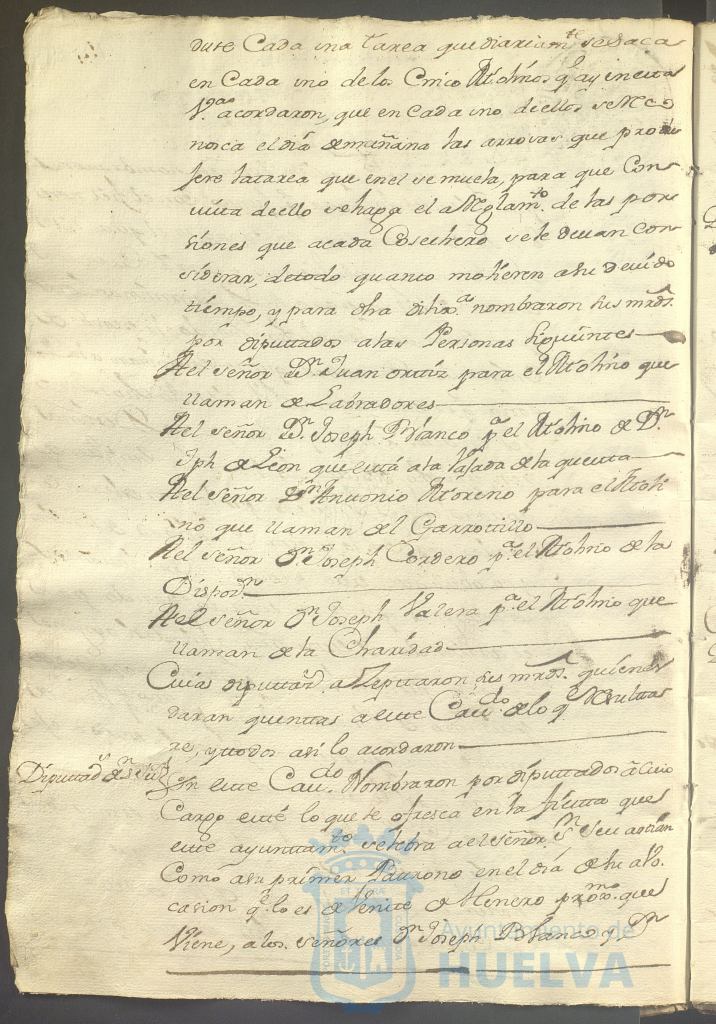 duse Cada una tarea que diariamte se saca
en Cada uno de los Cinco Molinos q ay en esta
Va acordaron, que en Cada uno de ellos se Reco
nosca el dia de mañana las arrovas que produ
sere la tarea que en el se muela, para que Con
vista de ello se haga el aReglamto de las por
siones que acada Cosechero se le devan Con
siderar, de todo quanto molieren a su devido
tiempo, y para dha diliga nombraron sus mrds
por diputtados a las Personas siguientes
Ael señor Dn Juan ortiz para el Molino que
llaman de Labradores
Ael señor Dn Joseph Blanco pa el Molino de Dn
Jph de Leon que está a la Vajada de la questta
Ael señor Dn Antonio Moreno para el Moli
no que llaman del Garrotillo
Ael señor Dn Joseph Cordero pa el Molino de la
Ael señor Dn Joseph Valera pa el Molino que
llaman de la Charidad
Cuias diputtas asepttaron sus mrds quienes
daran quenttas a este Cavdo de lo q Resulttas
re, y todos asi lo acordaron
Diputtads de Sn Seuan
En este Cavdo Nombraron por diputtados a Cuio
Cargo esté lo que se ofresca en la fiestta que
este ayunttamto selebra a el señor Sn Sevastian
Como a su primer Pattrono en el dia de su avo
cacion qe lo es de Veinte de Henero proxmo que
Viene, a los señores Dn Joseph Blanco y Dn
Ayuntamiento de
HUELVA